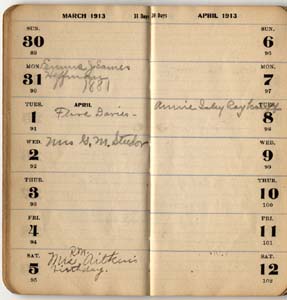 MARCH 1913
31 Days
SUN.
30
89
MON.
31
90
Emma James
Heffman
1881
TUES.
APRIL
1
91
Flora Davies-
WED.
2
92
Mrs G. M.
THUR.
3
93
FRI.
4
94
SAT.
5
95
Mrs. Rm. Aitken's
birthday.
30 Days
APRIL 1913
SUN.
6
96
MON.
7
97
TUES.
8
98
Annie
WED.
9
99
THUR.
10
100
FRI.
11
101
SAT.
12
102